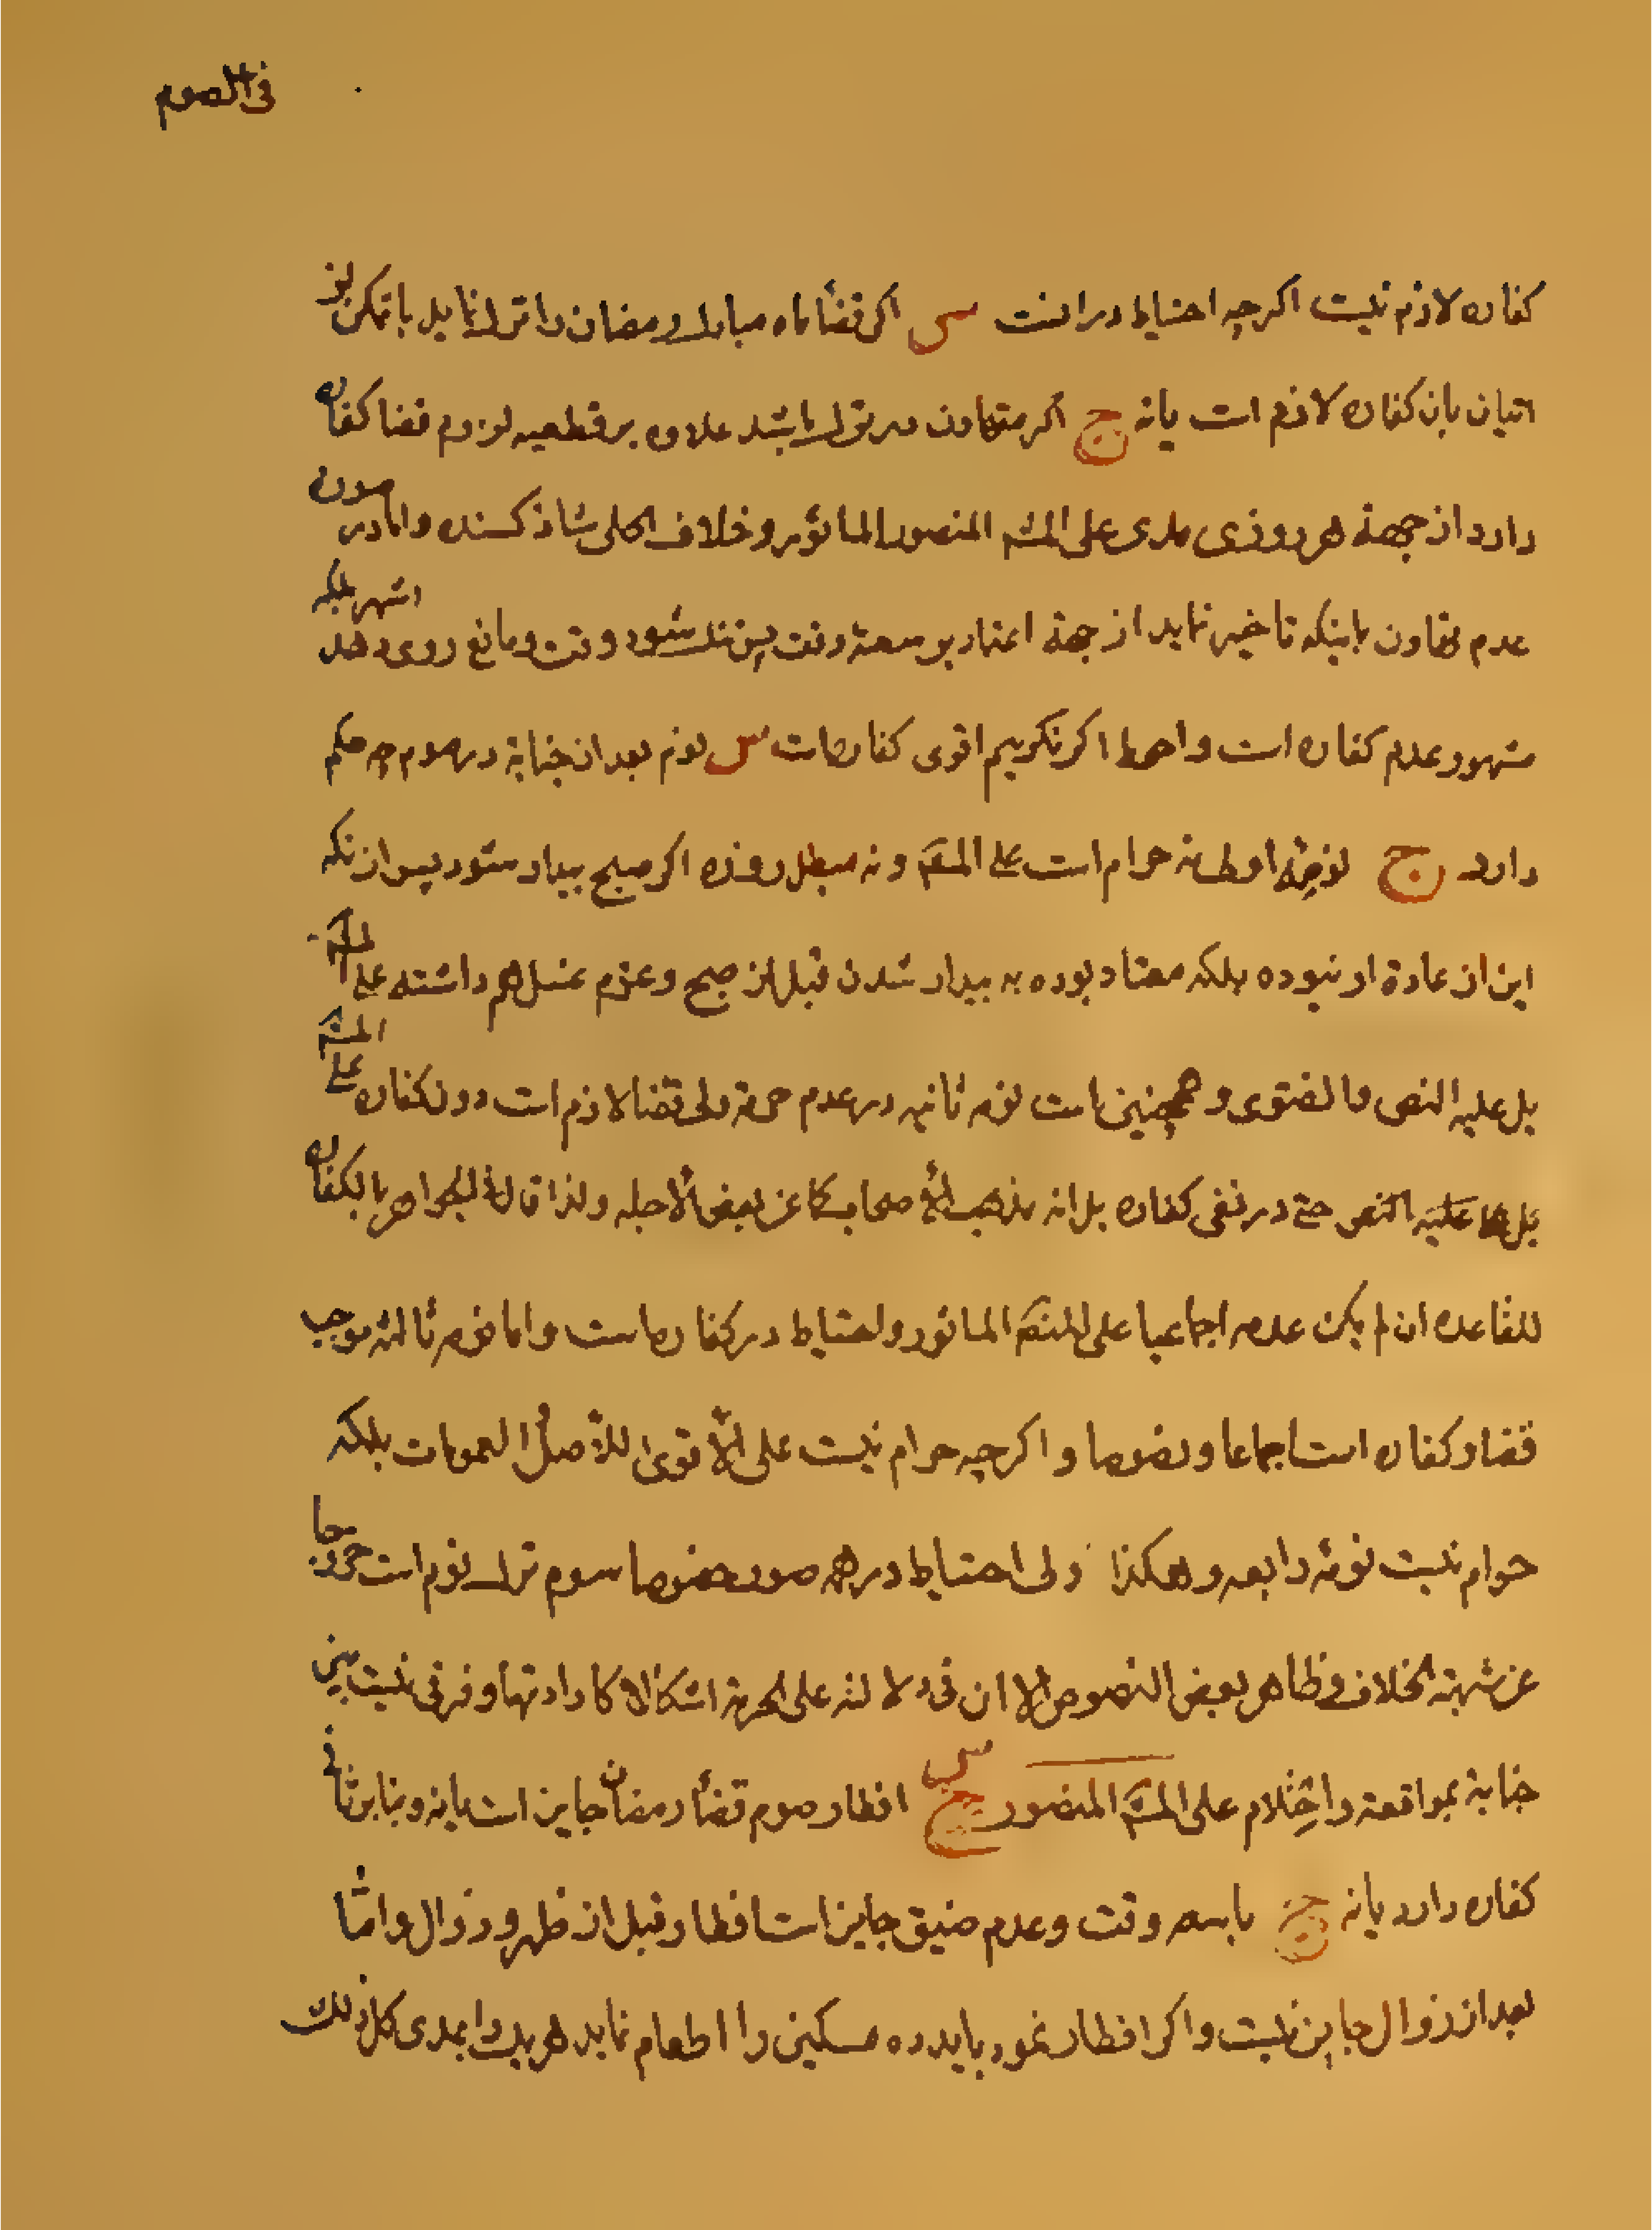 فی الصوم
کفاره لازم نیست اکرچه احتیاط در انست س اکر قضأ ماه مبارك رمضان را ترك نماید با تمکن از
اتیان بان کفاره لازم است یا نه ج اکر متهاون در ترك باشد علاوه بر قطعیه لزوم قضا کفاره
دارد از جهة هر روزی مدی علی المشهـ المنصور الماثور و خلاف الحلی شاذ کسنده و اما در صورت
عدم تهاون باینکه تاخیر نماید از جهة اعتماد بر سعة وقت پس تنك شود وقت و مانع روی دهد اشهر بلکه
مشهور عدم کفاره است و احوط اکر نکوییم اقوی کفاره است س نوم بعد از جنابة در صوم چه حکم
دارد ج نومۀ اولی نه حرام است علی المشهـ و نه مبطل روزه اکر صبح بیدار شود پس از آنکه
این از عادة او نبوده بلکه معتاد بوده به بیدار شدن قبل از صبح و عزم غسل هم داشته علی المشهـ
بل علیه النص والفتوی و همچنین است نومه ثانیه در عدم حرمة ولی قضا لازم است دون کفاره علی المشهـ
بل علیه النص حتی در نفی کفاره بل انه مذهب الأصحاب کما عن بعض الأجله ولذا قال فی الجواهر بالکفاره
للقاعده ان لم یکن عدمه اجماعیا علی المشهـ الماثور و احتیاط در کفاره است و اما نومه ثالثه موجب
قضا و کفاره است اجماعا و نصوصا و اکرچه حرام نیست علی الأقوی للأصل العمومات بلکه
حرام نیست نومۀ رابعه و هکذا ولی احتیاط در همه صور خصوصا سوم ترك نوم است خروجا
عن شبهة الخلاف و ظاهر بعض النصوص الا ان فی دلالته علی الحرمة اشکالا کارادتها و فرقی نیست بین
جنابة بمواقعة و احتلام علی المشهـ المنصور س افطار صوم قضأ رمضان جایز است یا نه و بنابر ثانی
کفاره دارد یا نه ج با سعه وقت و عدم ضیق جایز است افطار قبل از ظهر و زوال و امّا
بعد از زوال جایز نیست و اکر افطار نمود باید ده مسکین را اطعام نماید هر یك را بمدی کل ذلك